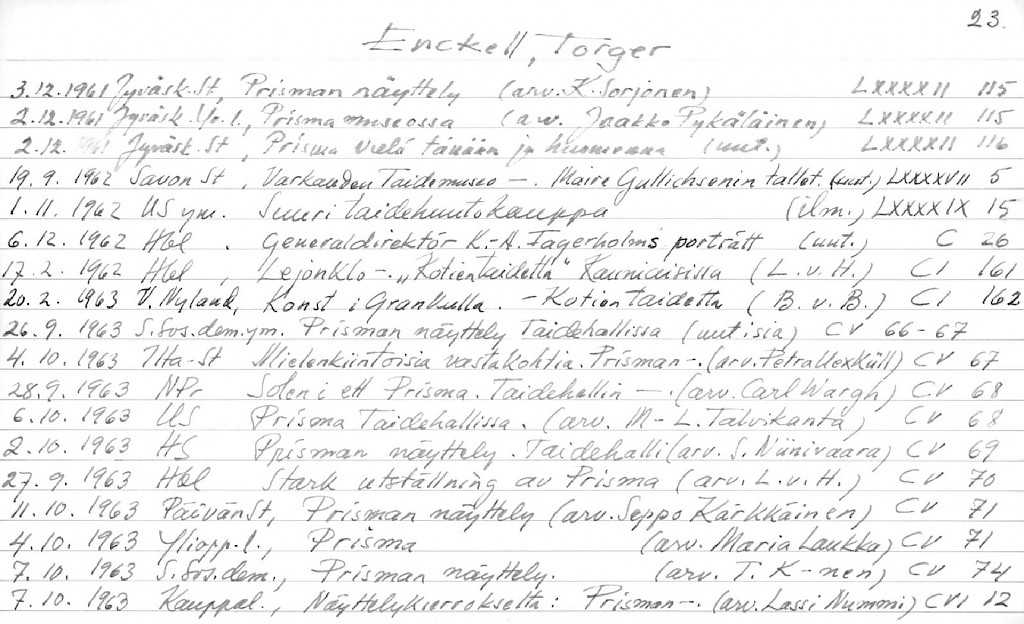 23.
Enckell, Torger
3.12.1961 Jyväsk. St, Prisman näyttely (arv. K. Sorjonen) LXXXXII 115
2.12.1961 Jyväsk. Yo. l., Prisma museossa (arv. Jaakko Pykäläinen) LXXXXII 115
2.12.1961 Jyväsk. St, Prisma vielä tänään ja huomenna (uut.) LXXXXII 116
19.9.1962 Savon St, Varkauden Taidemuseo –. Maire Gullichsenin tallet. (uut.) LXXXXVII 5
1.11.1962 US ym. Suuri taidehuutokauppa (ilm.) LXXXXIX 15
6.12.1962 Hbl. Generaldirektör K.-A. Fagerholms porträtt (uut.) C 26
17.2.1962 Hbl, Lejonklo –. „Kotien taidetta" Kauniaisissa (L.v.H.) CI 161
20.2.1963 V. Nyland, Konst i Grankulla. – Kotien taidetta (B.v.B.) CI 162
26.9.1963 S. Sos.dem. ym. Prisman näyttely Taidehallissa (uutisia) CV 66-67
4.10.1963 Ilta-St Mielenkiintoisia vastakohtia. Prisman –. (arv. Petra Uexküll) CV 67
28.9.1963 NPr Solen i ett Prisma. Taidehallin –. (arv. Carl Wargh) CV 68
6.10.1963 US Prisma Taidehallissa. (arv. M-L. Talvikanta) CV 68
2.10.1963 HS Prisman näyttely. Taidehalli (arv. S. Niinivaara) CV 69
27.9.1963 Hbl Stark utställning av Prisma (arv. L.v.H.) CV 70
11.10.1963 Päivän St, Prisman näyttely (arv. Seppo Kärkkäinen) CV 71
4.10.1963 Yliopp. l., Prisma (arv. Maria Laukka) CV 71
7.10.1963 S. Sos.dem., Prisman näyttely. (arv. T. K-nen) CV 74
7.10.1963 Kauppal., Näyttelykierrokselta: Prisman –. (arv. Lassi Nummi) CVI 12